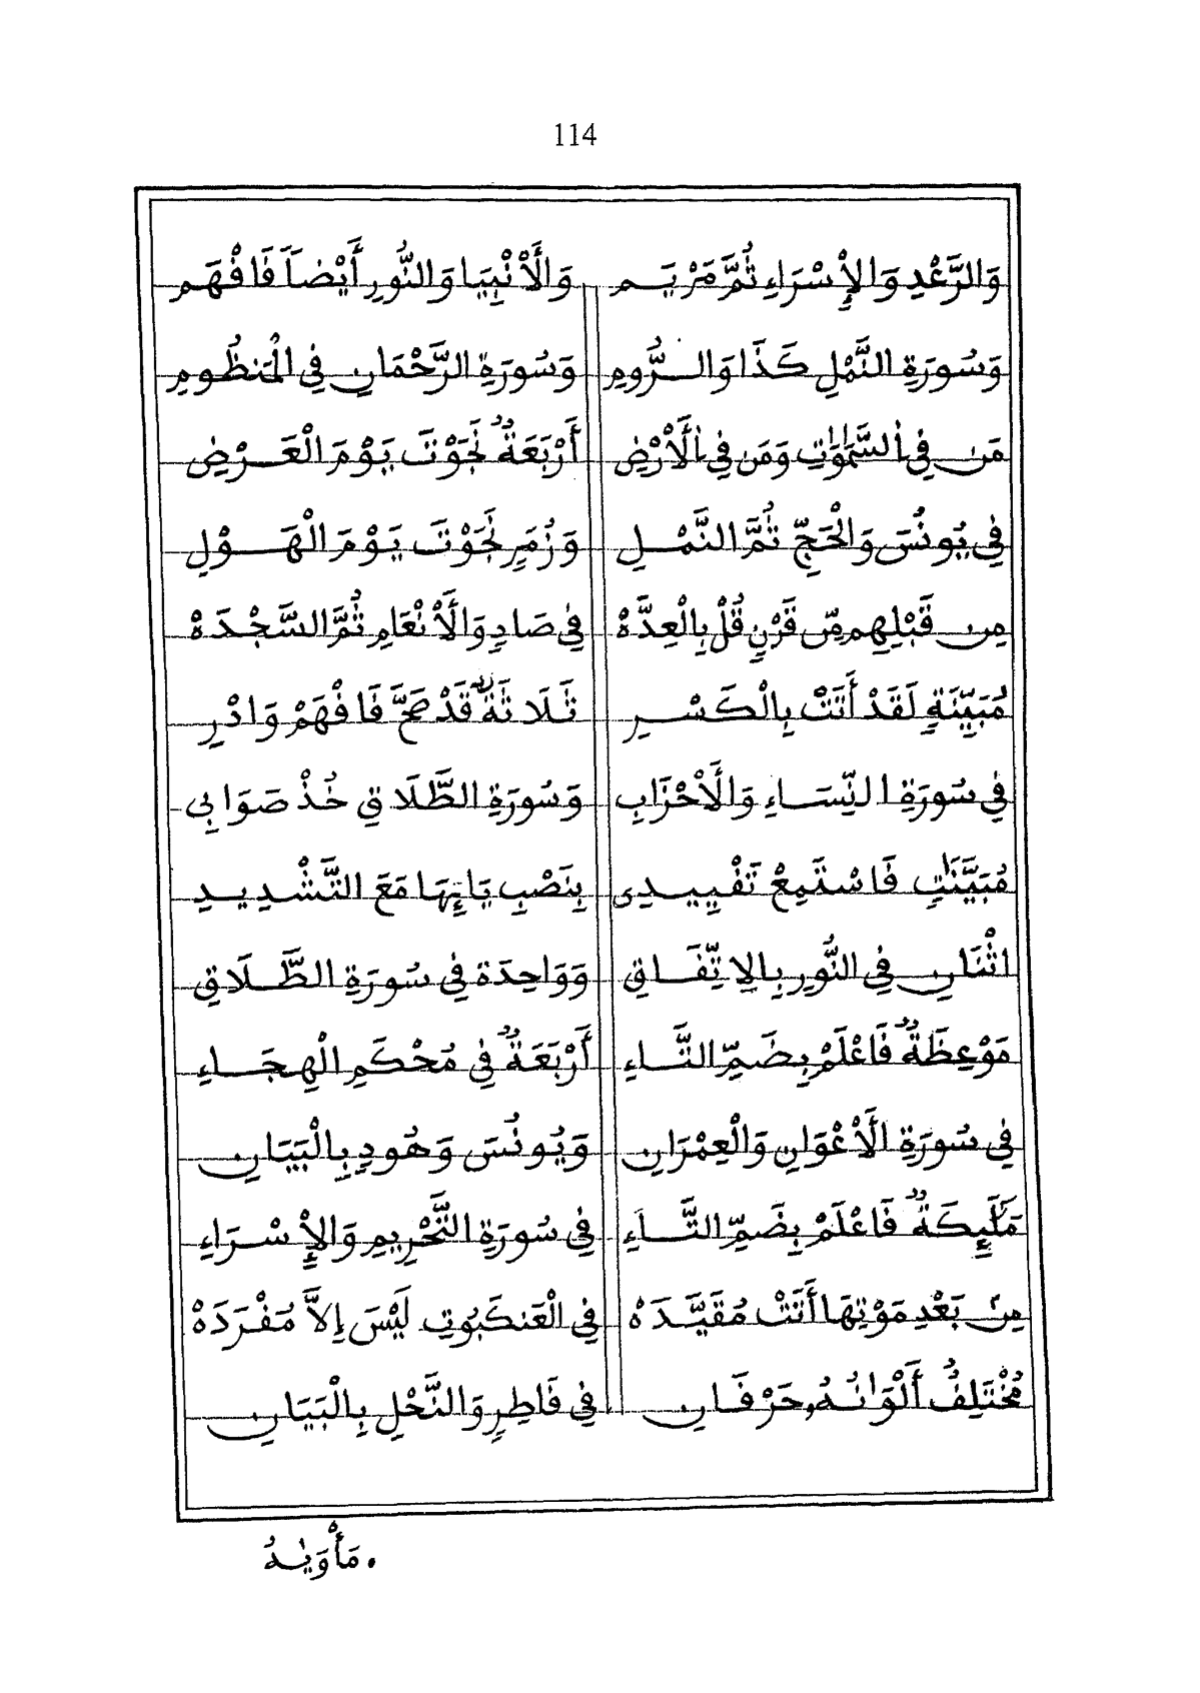 114
وَالرَّعْدِ وَالإِسْرَاءِ ثُمَّ مَرْيَمِ وَالَأنْبِيَا وَالنُّورِ أَيْضاً فَافْهَمِ
وَسُورَةِ النَّمْلِ كَذَا وَالرُّومِ وَسُورَةِ الرَّحْمَانِ فِي الْمَنظُومِ
مَن فِي السَّمَٰوَٰتِ وَمَن فِي الَأرْضِ أَرْبَعَةٌ نَجَوْتَ يَوْمَ الْعَرْضِ
فِي يُونُسَ وَالْحَجِّ ثُمَّ النَّمْلِ وَزُمَرٍ نَجَوْتَ يَوْمَ الْهَوْلِ
مِن قَبْلِهِم مِّن قَرْنٍ قُلْ بِالْعِدَّهْ فِي صَادٍ وَالَأنْعَامِ ثُمَّ السَّجْدَهْ
مُّبَيِّنَةٍ لَقَدْ أَتَتْ بِالْكَسْرِ ثَلَاثَةٌ قَدْ صَحَّ فَافْهَمْ وَادْرِ
فِي سُورَةِ النِّسَاءِ وَالَأحْزَابِ وَسُورَةِ الطَّلَاقِ خُذْ صَوَابِي
مُبَيَّنَٰتٍ فَاسْتَمِعْ تَقْيِيدِي بِنَصْبِ يَائِهَا مَعَ التَّشْدِيدِ
اثْنَانِ فِي النُّورِ بِالِاتِّفَاقِ وَوَاحِدَة فِي سُورَةِ الطَّلَاقِ
مَوْعِظَةٌ فَاعْلَمْ بِضَمِّ التَّاءِ أَرْبَعَةٌ فِي مُحْكَمِ الْهِجَاءِ
فِي سُورَةِ الَأعْوَانِ وَالْعِمْرَانِ وَيُونُسَ وَهُودٍ بِالْبَيَانِ
مَلَٰٓئِكَةٌ فَاعْلَمْ بِضَمِّ التَّاءِ فِي سُورَةِ التَّحْرِيمِ وَالإِسْرَاءِ
مِنۢ بَعْدِ مَوْتِهَا أَتَتْ مُقَيَّدَهْ فِي الْعَنكَبُوتِ لَيْسَ إِلاَّ مُفْرَدَهْ
مُّخْتَلِفٌ أَلْوَانُهُ حَرْفَانِ فِي فَاطِرٍ وَالنَّحْلِ بِالْبَيَانِ
. مَأْوَيٰهُ